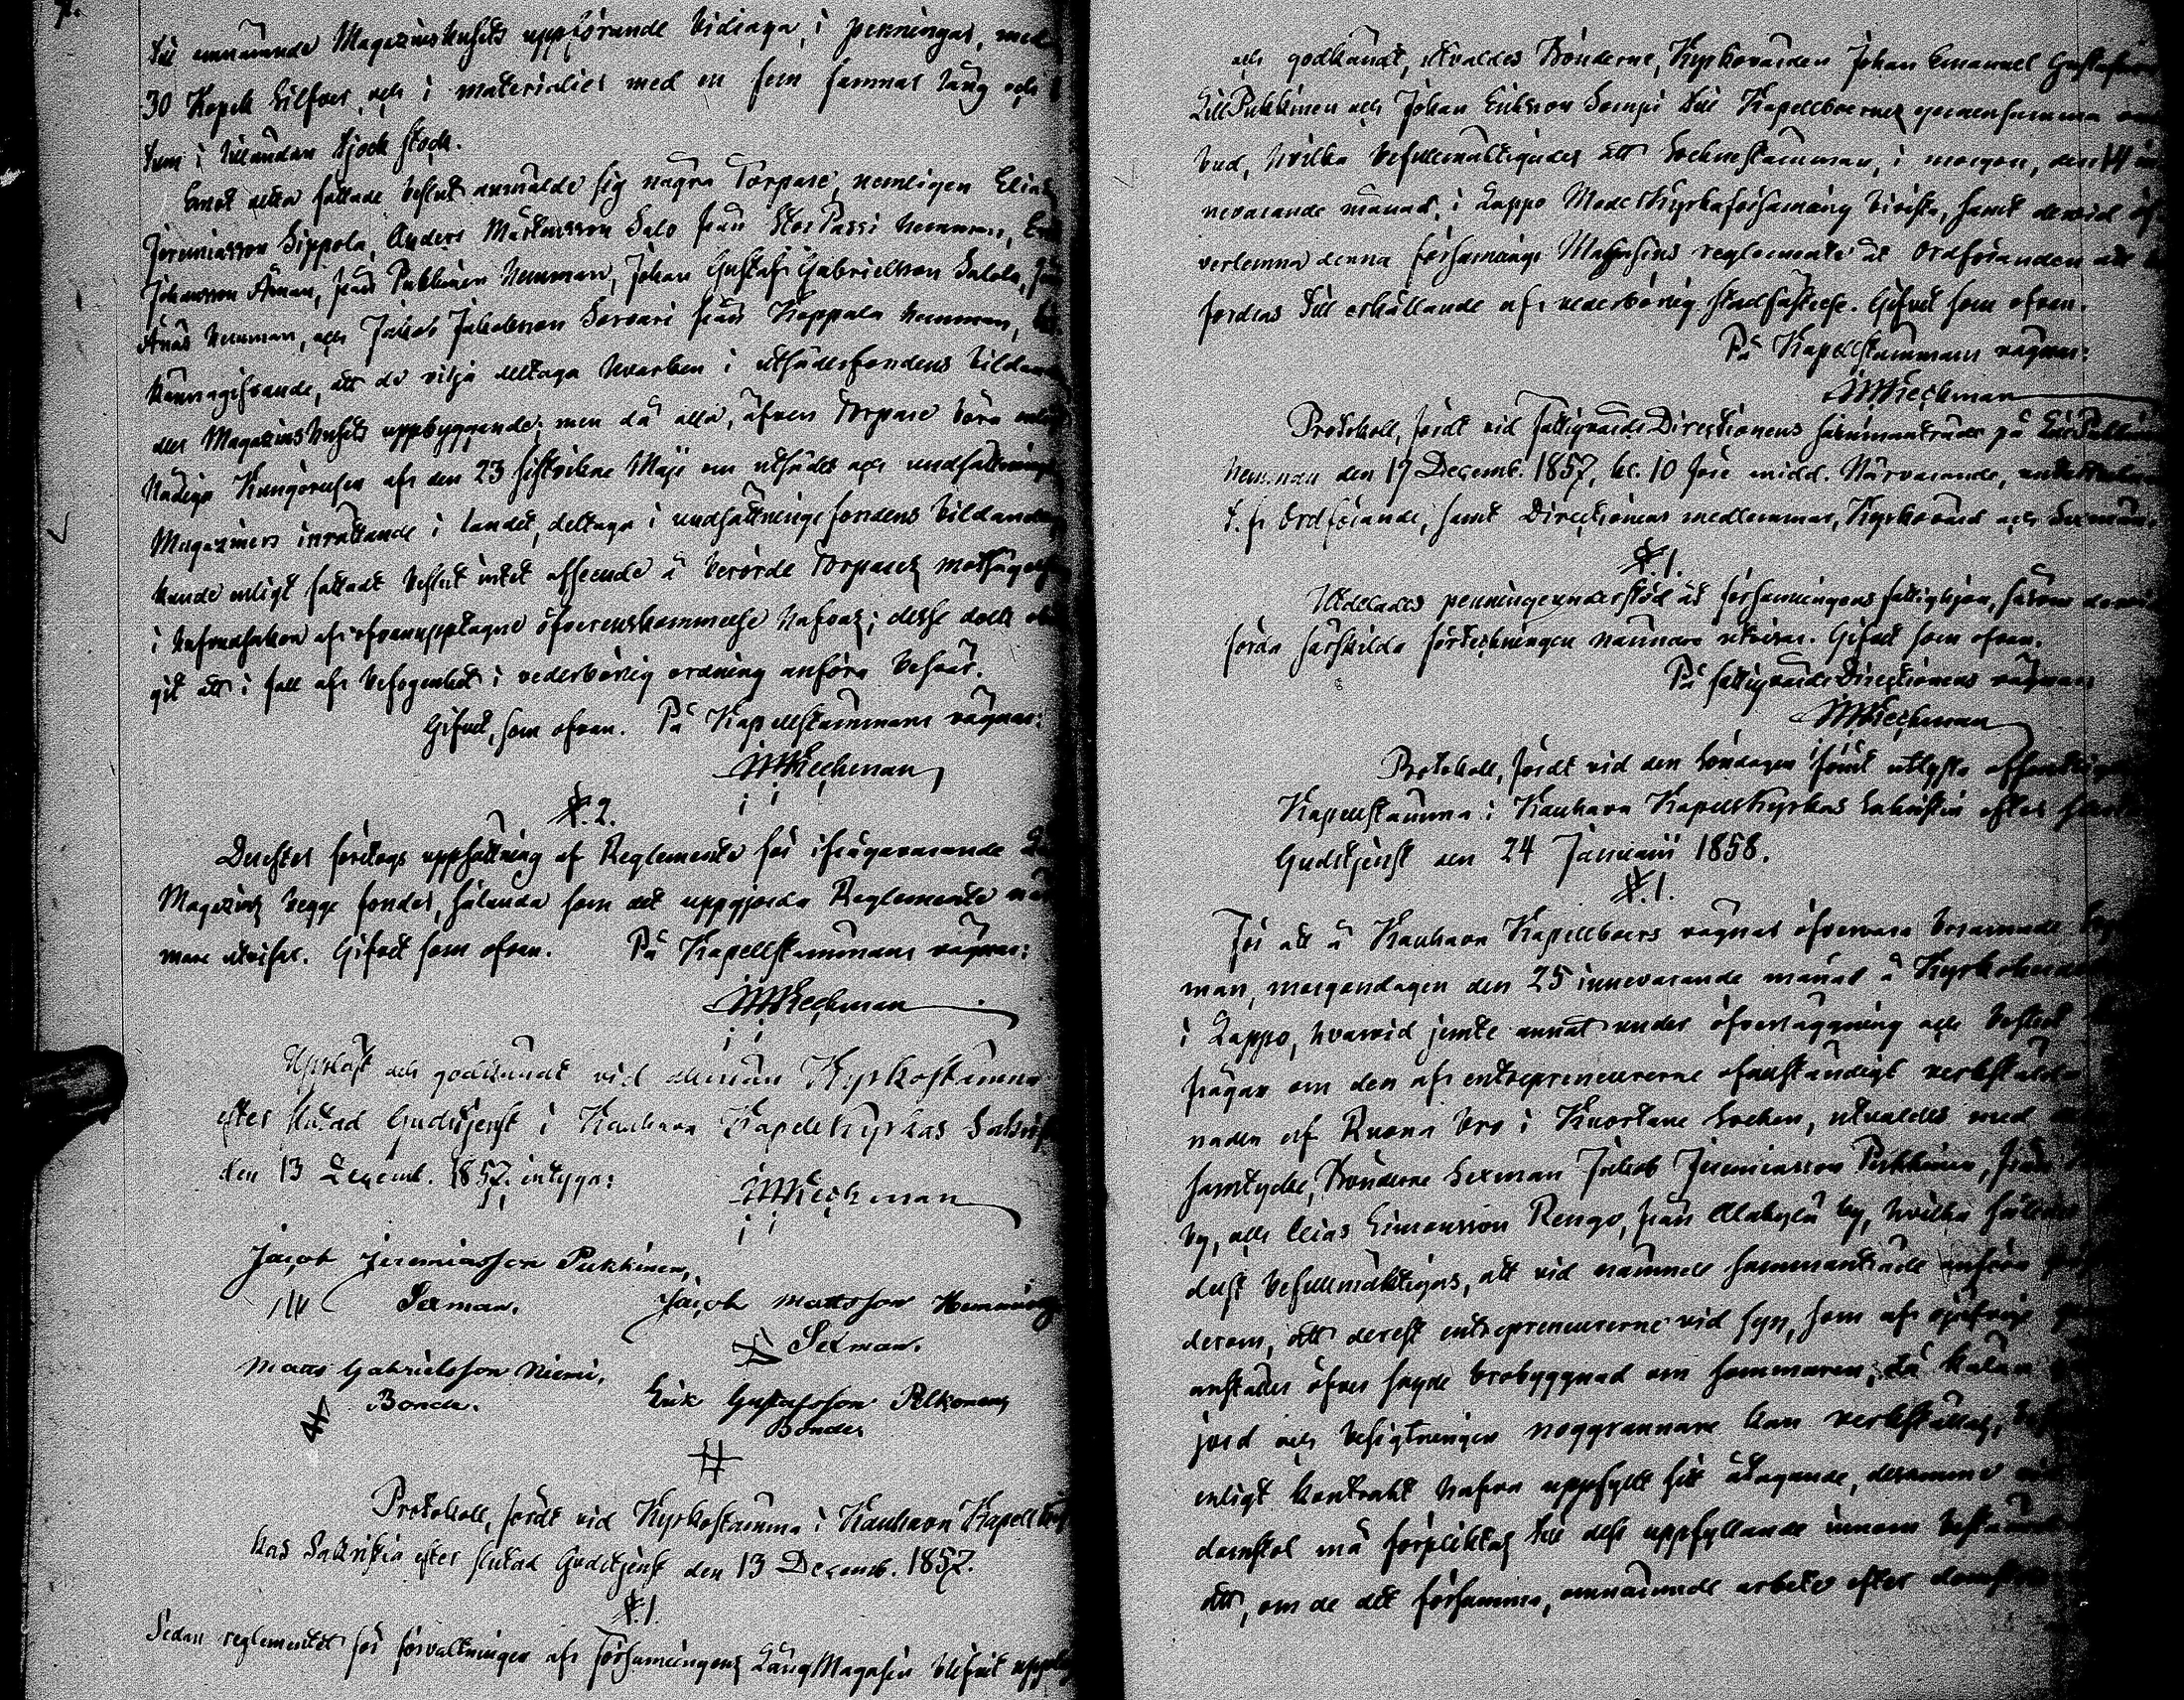 till omnämnde Magazinshusets uppförande bidraga, i penningar, med
30 Kopek Silfver, och i materialier med en fem famnar lång och
tum i lilländan tjock stock.
Emot detta fattade beslut anmälde sig några Torpare, nemligen Elias
Jeremiasson Sippola, Anders Mårtensson Salo från StorPassi hemman,
Johansson Åman, från Pukkinen hemman, Johan Gustaf Gabrielsson Salola,
Änäs hemman, och Jakob Jakobsson Sorvari från Koppala hemman,
kännagifvande, att de vilja deltaga hvarken i utsädesfondens bildande
eller Magazinshusets uppbyggande; men då alla, äfven Torpare böra enligt
Nådiga Kungörelsen af den 23 sistvikne Maji om utsädes och undsättnings
Magaziners inrättande i landet, deltaga i undsättningsfondens bildande,
kunde enligt fattadt beslut intet afseende å berörde Torpares motsägelse
i hufvudsaken af ofvanupptagne öfverenskommelse hafvas; desse dock
git att i fall af befogenhet i vederbörlig ordning anföra besvär.
Gifvet, som ofvan. På Kapellstämmans vägnar:
§. 2.
Derefter företogs uppsättning af Reglemente för ifrågavarande
Magazins begge fonder, sålunda som det uppgjorda Reglemente när
mare utvisar. Gifvet som ofvan. På Kapellstämmans vägnar:
Uppläst och godkändt vid allmän Kyrkostämma
efter slutad Gudstjenst i Kauhava Kapellkyrkas Sakristi
den 13 Decemb. 1857, intygar:
Jacob Jeremiasson Pukkinen,
Sexman.
Jacob Mattsson Hemming
Sexman.
Matts Gabrielsson Niemi,
Bonde.
Erik Gustafsson Pelkonen,
Bonde.
Protokoll, fördt vid Kyrkostämma i Kauhava Kapell Kyr
kas Sakristia efter slutad Gudstjenst den 13 Decemb. 1857.
§. 1.
Sedan reglementet för förvaltningen af Församlingens Lång Magasin blifvit uppläst
och godkändt, utvaldes Bönderne, Kyrkovärden Johan Emanuel Gustafsson
LillPukkinen och Johan Eriksson Sompi till Kapellboernes gemensamma om
bud, hvilka befullmäktigades att Socknestämman, i morgon, den 14 in
nevarande månad, i Lappo ModerKyrkoförsamling bivista, samt dervid öf
verlemna denna församlings Magasins reglemente åt Ordföranden att
fordras till erhållande af vederbörlig stadfästelse. Gifvet som ofvan.
På Kapellstämmans vägnar:
Protokoll, fördt vid FattigvårdsDirectionens sammanträde på LillPukkinen
hemman den 17 Decemb. 1857, kl. 10 före midd. Närvarande,
t. f. Ordförande, samt Directionens medlemmar, Kyrkovärd och Sexmän.
§. 1.
Utdelades penningeunderstöd åt församlingens fattighjon, såsom
förda särskilda förteckningen närmare utvisar. Gifvet som ofvan.
På FattigvårdsDirectionens vägnar
Protokoll, fördt vid den Söndagen förut utlyste offentliga
Kapellstämma i Kauhava KapellKyrkas Sakristia efter slutad
Gudstjenst den 24 Januarii 1858.
§. 1.
För att å Kauhava Kapellboers vägnar öfvervara
man, morgondagen den 25 innevarande månad å Kyrkoherde
i Lappo, hvarvid jemte annat under öfverläggning och beslut
frågan om den af entrepreneurerne ofullständigt verkställda
naden af Ruona bro i Kuortane Socken, utvaldes med
samtycke, Bönderne Sexman Jakob Jeremiasson Pukkinen, från
by, och Elias Simonsson Rengo, från Alakylä by, hvilka
dest befullmäktigas, att vid nämnde sammanträde anföra
derom, att derest entrepreneurerne vid syn, som af
anställes öfver sagde brobyggnad om sommaren, då kälan
jord och besigtningen noggrannare kan verkställas,
enligt kontrakt hafva uppfyllt sitt åtagande, desamme
domstol må förpliktas till dess uppfyllande innom
att, om de det försumma, omnämnde arbete efter